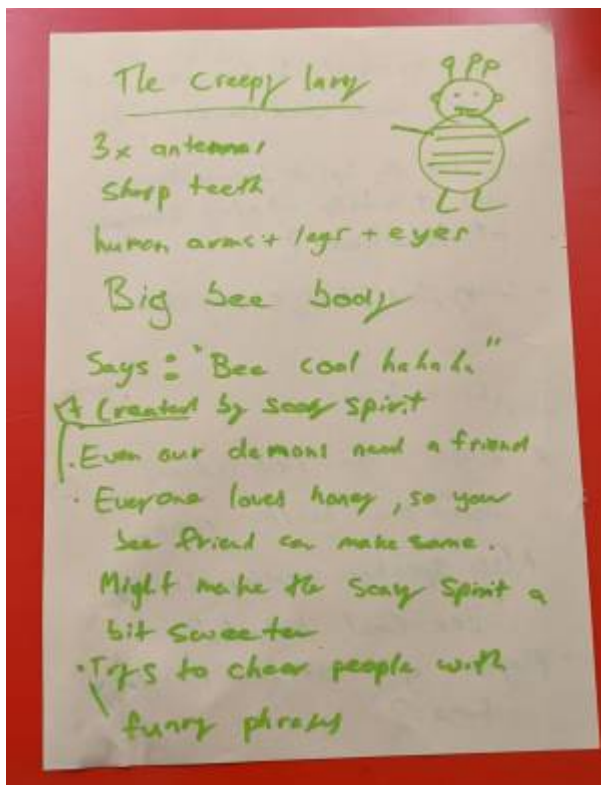 The creepy lary
3x antennas
sharp teeth
human arms + legs + eyes
Big bee body
Says : "Bee cool hahaha"
Created by scary spirit
· Even our demons need a friend
· Everyone loves honey, so your
bee friend can make some.
Might make the scary spirit a
bit sweeter
· Trys to cheer people with
funny phrases